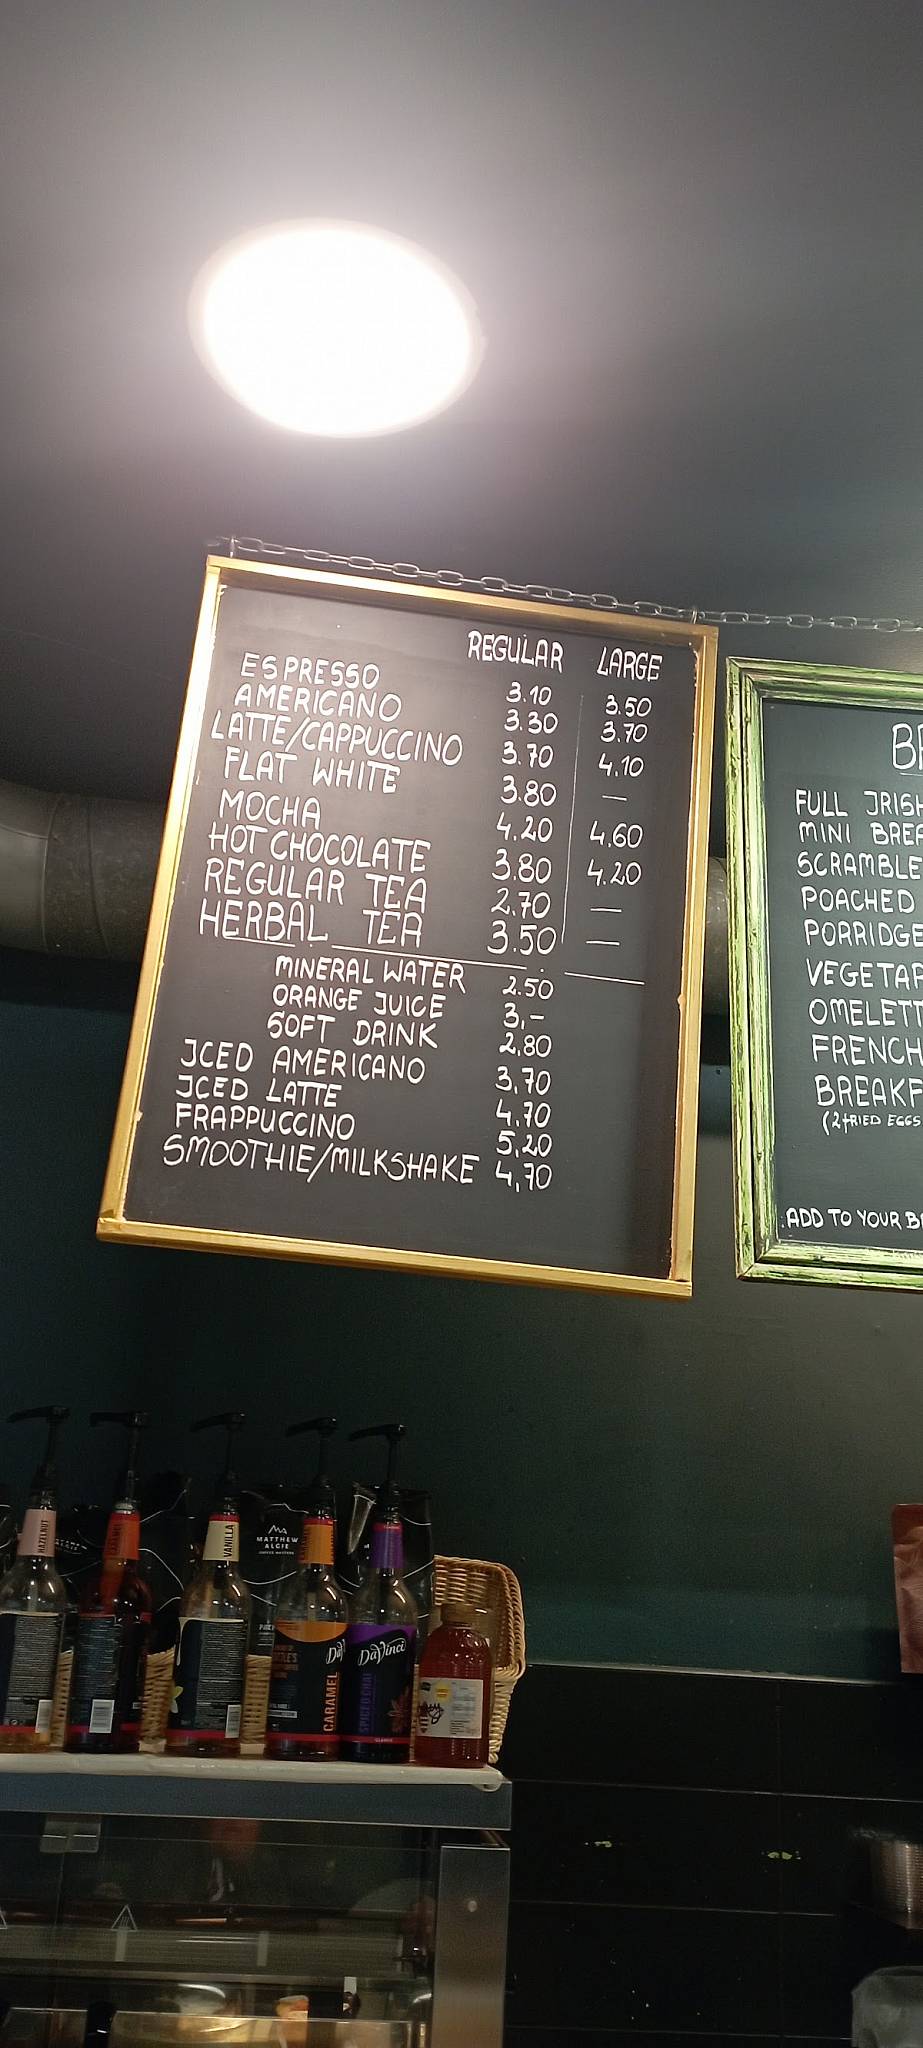 REGULAR LARGE
ESPRESSO 3.10 3.50
AMERICANO 3.30 3.70
LATTE/CAPPUCCINO 3.70 4.10
FLAT WHITE 3.80 —
MOCHA 4.20 4.60
HOT CHOCOLATE 3.80 4.20
REGULAR TEA 2.70 —
HERBAL TEA 3.50 —
MINERAL WATER 2.50
ORANGE JUICE 3,-
SOFT DRINK 2,80
JCED AMERICANO 3,70
JCED LATTE 4,70
FRAPPUCCINO 5,20
SMOOTHIE/MILKSHAKE 4,70
FULL JRISH
MINI BREA
SCRAMBLE
POACHED
PORRIDGE
VEGETAR
OMELETT
FRENCH
BREAKF
(2 FRIED EGGS
ADD TO YOUR
HAZELNUT
VANILLA
MATTHEW
ALGIE
CARAMEL
DaVinci
SPICED CHAI